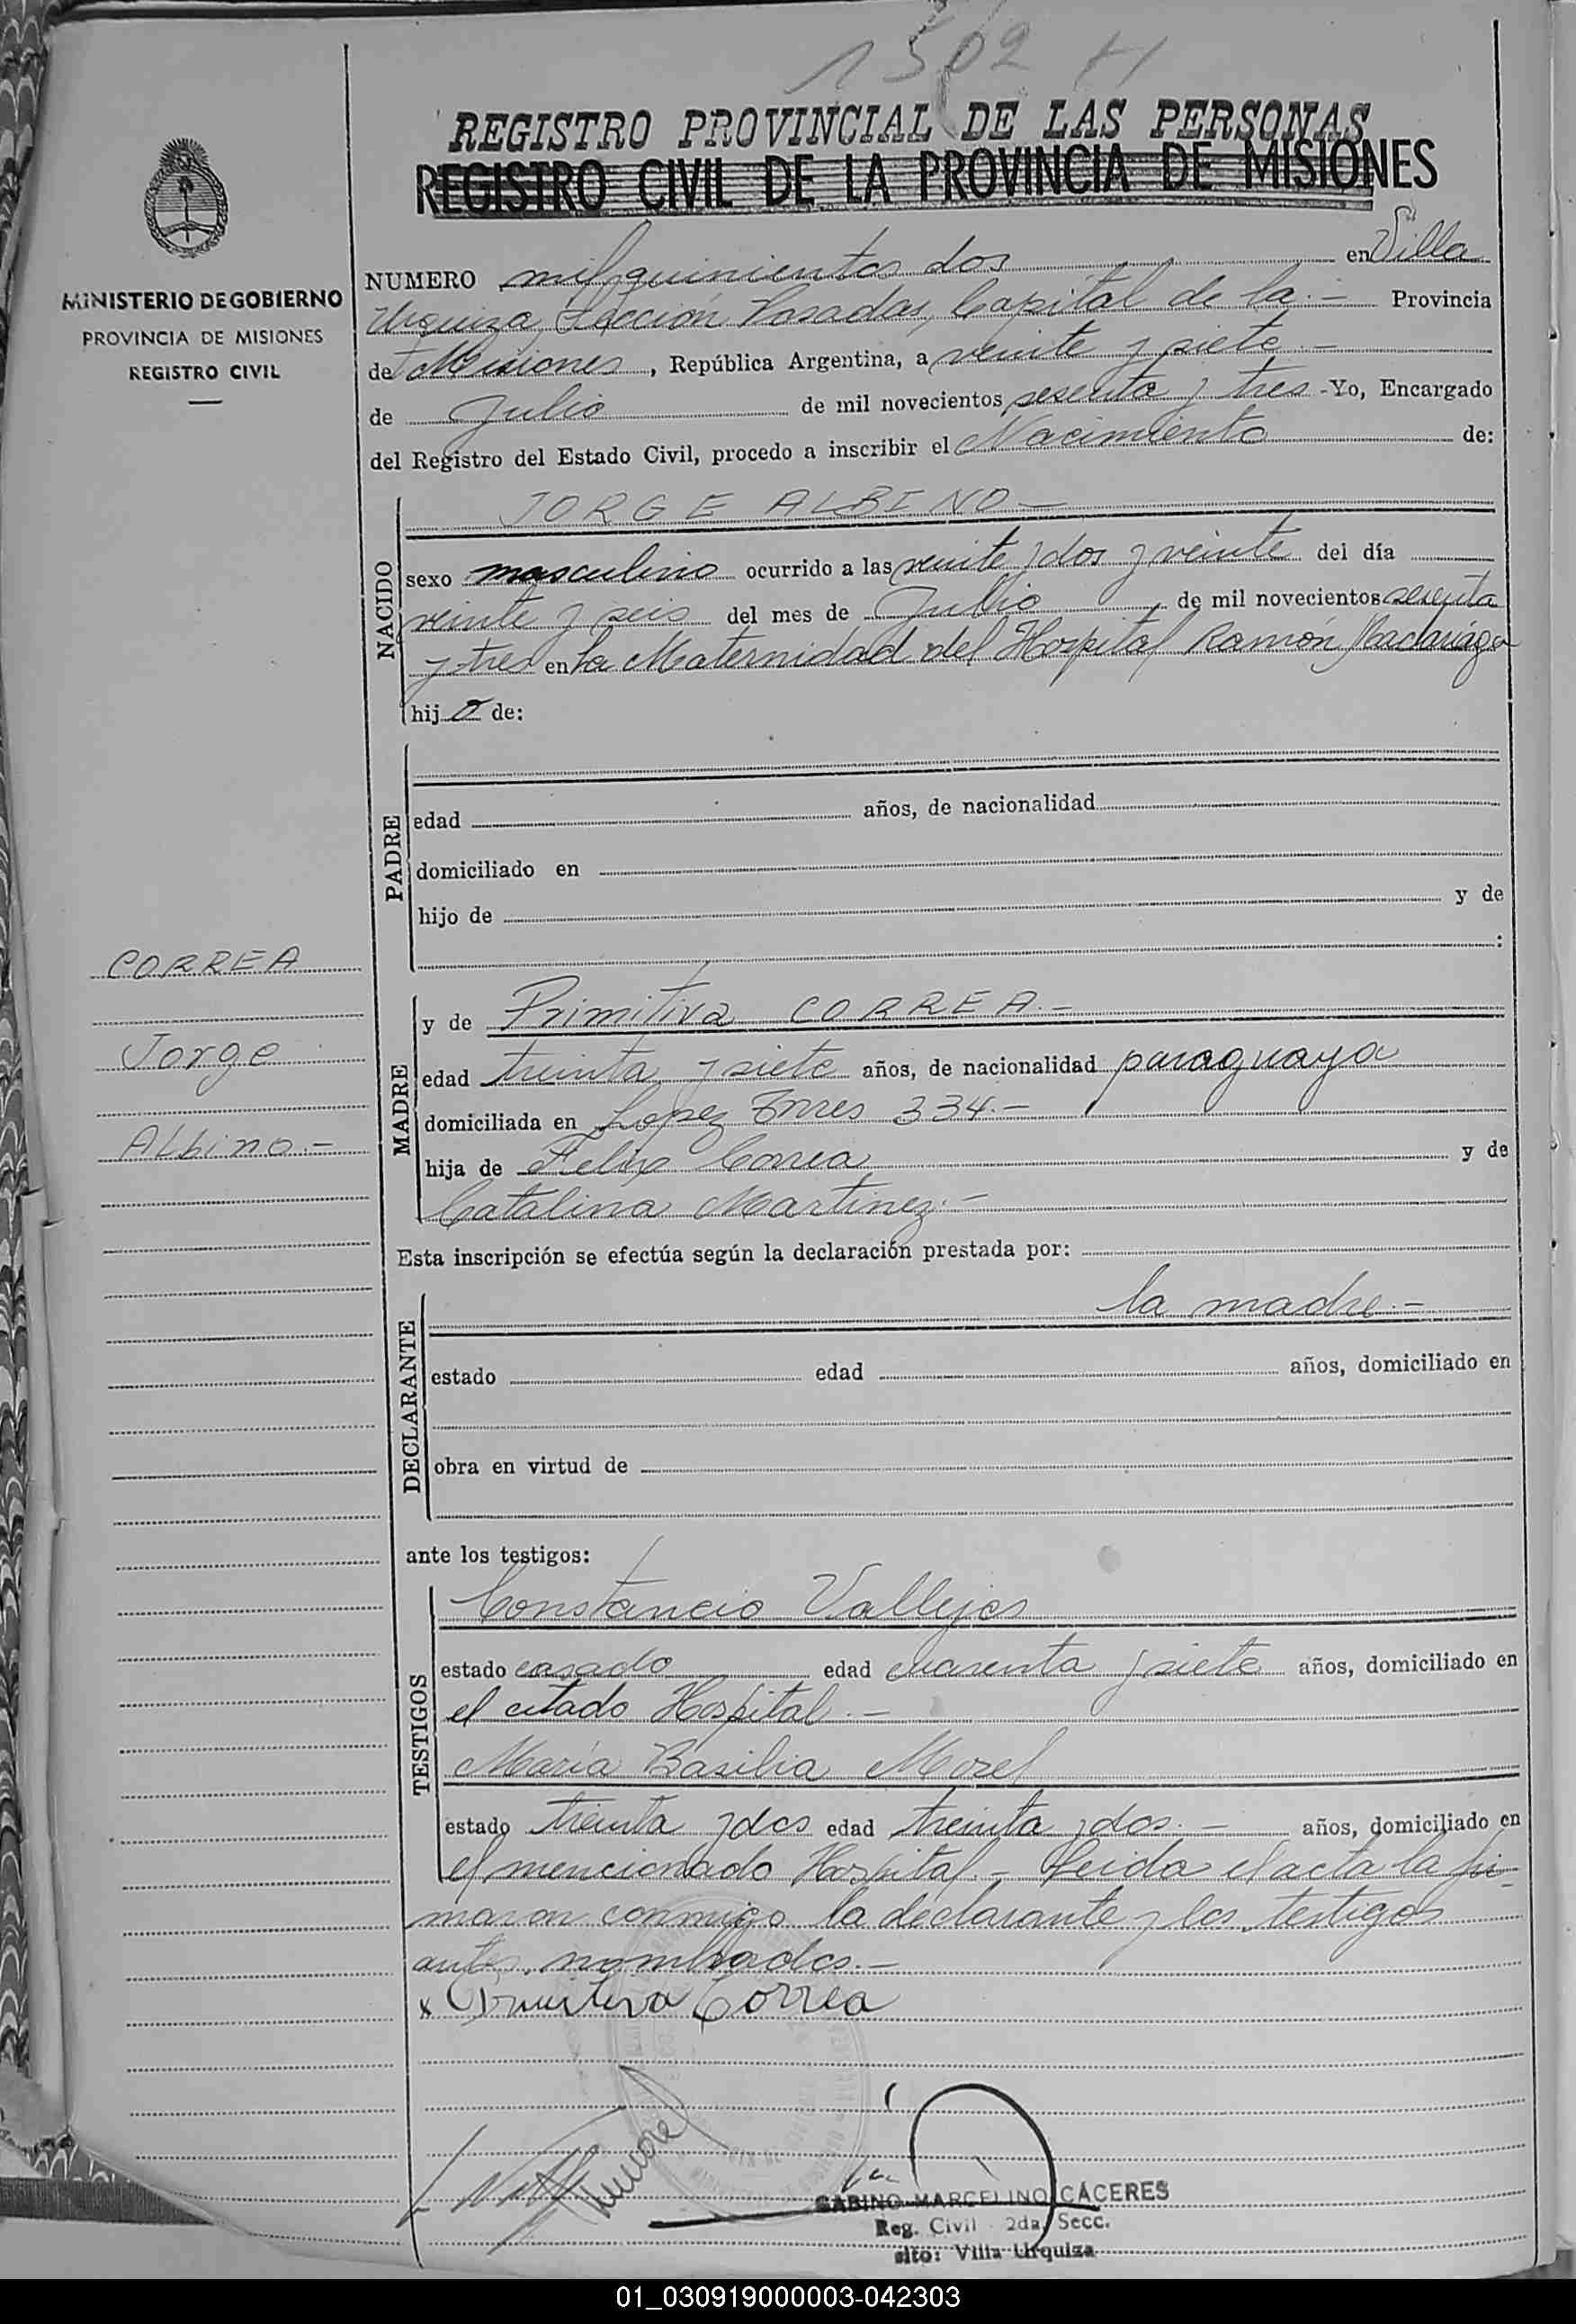 1502 H
REGISTRO PROVINCIAL DE LAS PERSONAS
REGISTRO CIVIL DE LA PROVINCIA DE MISIONES
MINISTERIO DE GOBIERNO
PROVINCIA DE MISIONES
REGISTRO CIVIL
NUMERO mil quinientos dos en Villa
Urquiza, Sección Posadas, Capital de la.- Provincia
de Misiones, República Argentina, a veinte y siete.-
de Julio de mil novecientos sesenta y tres -Yo, Encargado
del Registro del Estado Civil, procedo a inscribir el Nacimiento de:
NACIDO
JORGE ALBINO-
sexo masculino ocurrido a las veinte y dos y veinte del día
veinte y seis del mes de Julio de mil novecientos sesenta
y tres en la Maternidad del Hospital Ramón Madariága
hijo de:
PADRE
edad años, de nacionalidad
domiciliado en
hijo de y de
:
CORREA
Jorge
Albino.-
MADRE
y de Primitiva CORREA.-
edad treinta y siete años, de nacionalidad paraguaya
domiciliada en Lopez Torres 334.-
hija de Felix Correa y de
Catalina Martinez.-
Esta inscripción se efectúa según la declaración prestada por:
DECLARANTE
la madre.-
estado edad años, domiciliado en
obra en virtud de
ante los testigos:
TESTIGOS
Constancio Vallejos
estado casado edad cuarenta y siete años, domiciliado en
el citado Hospital.-
María Basilia Morel
estado treinta y dos edad treinta y dos.- años, domiciliado en
el mencionado Hospital.- Leida el acta la fir-
maron conmigo la declarante y los testigos
antes nombrados.-
x Primitiva Correa
GABINO MARCELINO CÁCERES
Reg. Civil - 2da. Secc.
sito: Villa Urquiza
01_030919000003-042303